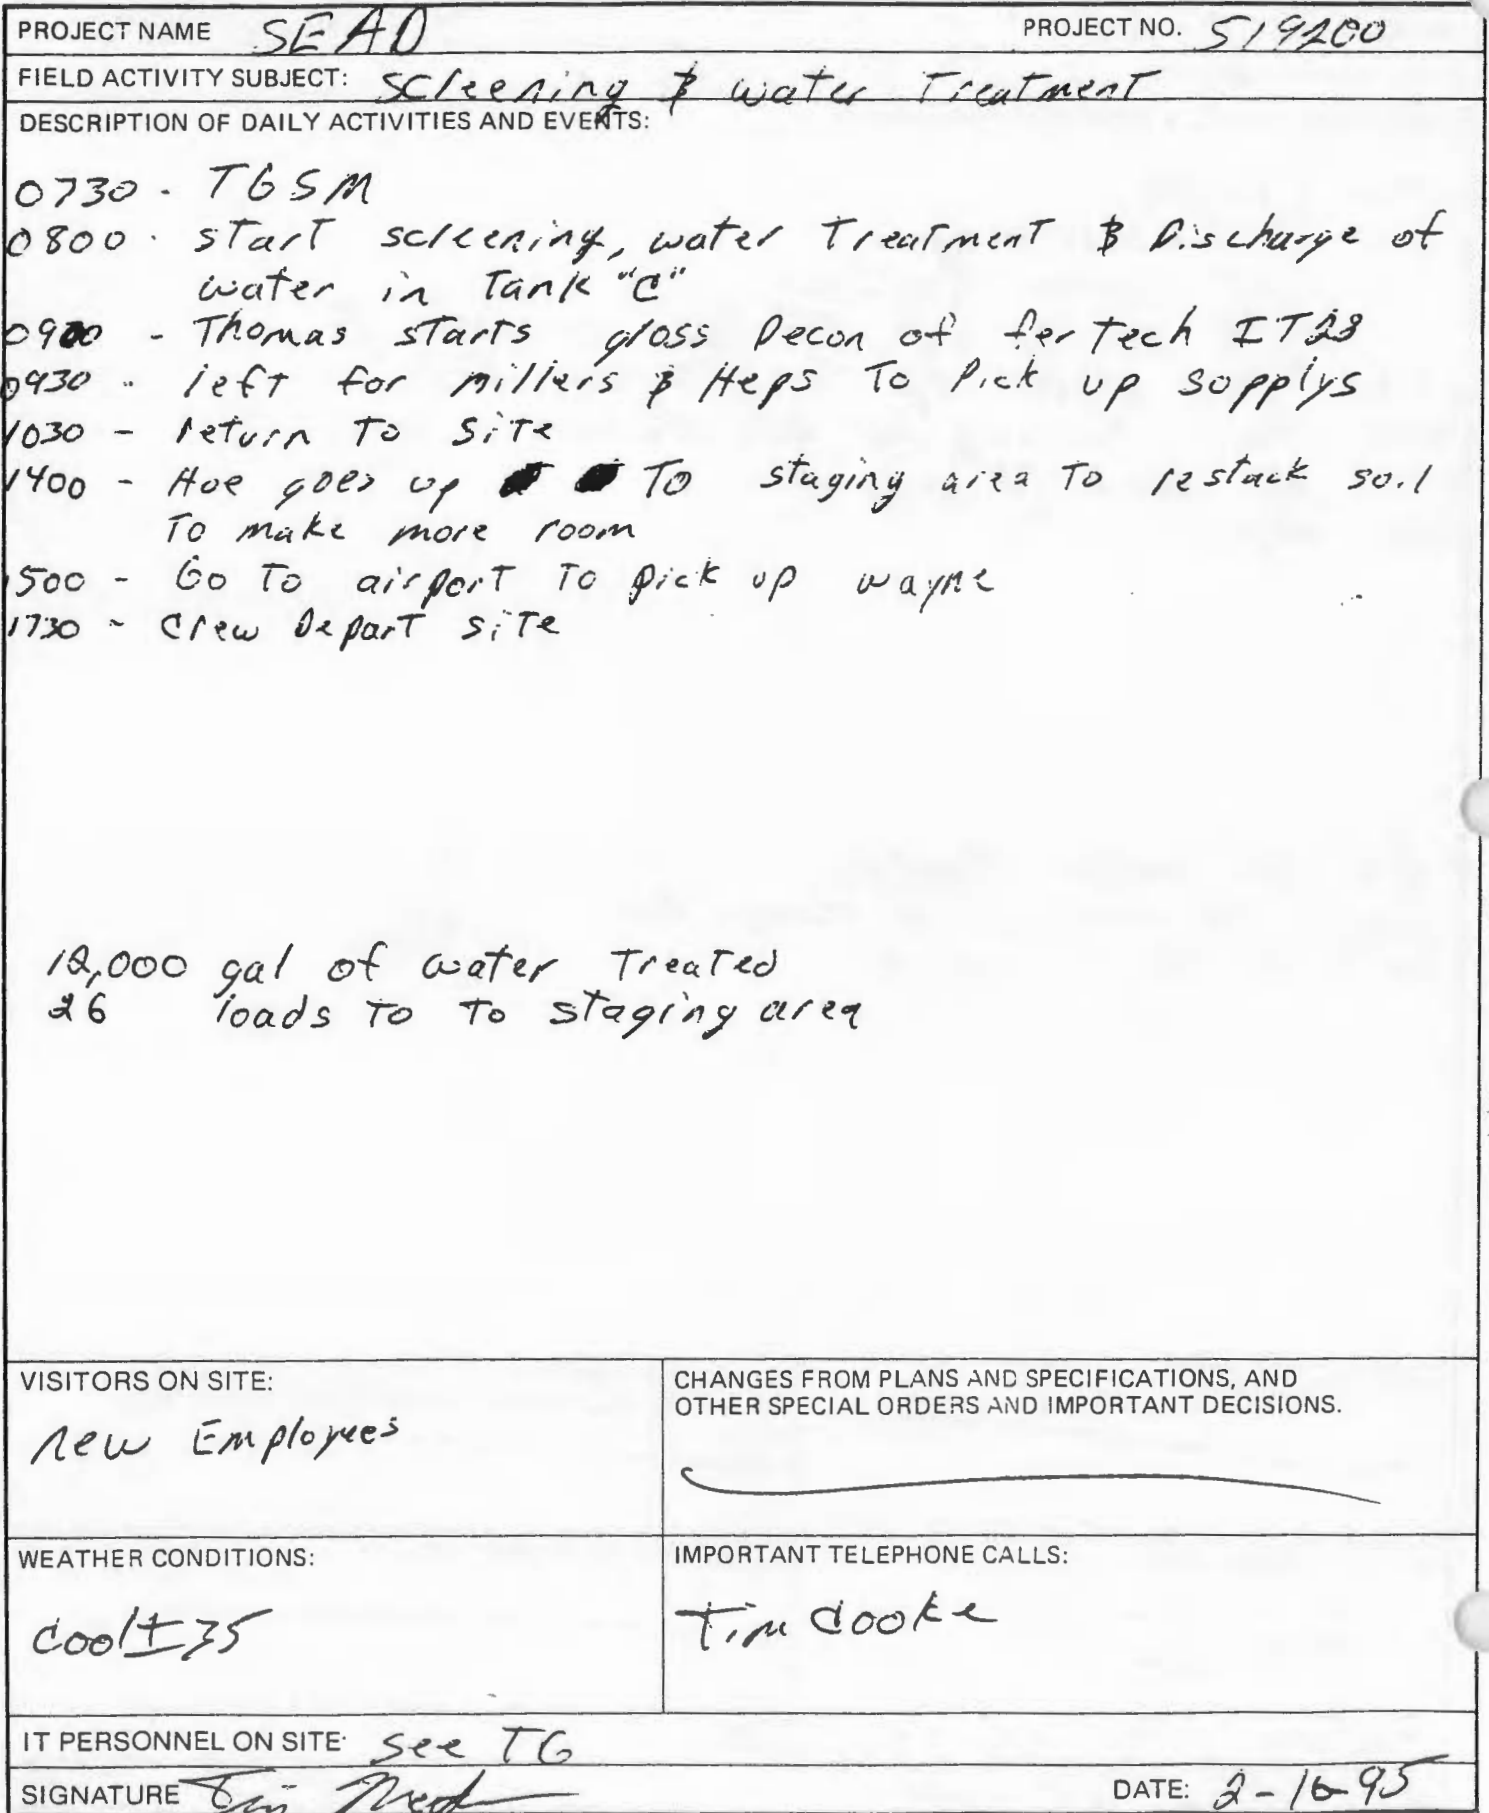 PROJECT NAME SEAD PROJECT NO. 519200
FIELD ACTIVITY SUBJECT: Screening & water Treatment
DESCRIPTION OF DAILY ACTIVITIES AND EVENTS:
0730 - TGSM
0800 - start screening, water Treatment & Discharge of
water in Tank "C"
0900 - Thomas starts gross Decon of fertech IT28
0930 - left for millers & Heps To Pick up supplys
1030 - return To site
1400 - Hoe goes up To staging area To restack soil
To make more room
1500 - Go To airport To pick up wayne
1730 - Crew Depart site
12,000 gal of water Treated
26 loads To To staging area
VISITORS ON SITE:
new Employees
CHANGES FROM PLANS AND SPECIFICATIONS, AND
OTHER SPECIAL ORDERS AND IMPORTANT DECISIONS.
WEATHER CONDITIONS:
cool ± 35
IMPORTANT TELEPHONE CALLS:
Tim Cooke
IT PERSONNEL ON SITE: see TG
SIGNATURE Tim DATE: 2-16-95